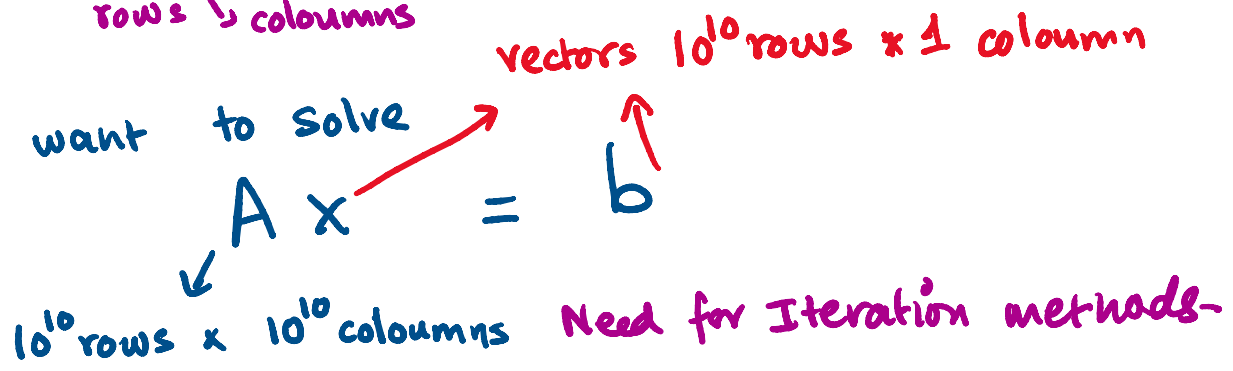 rows & coloumns
vectors 10^10 rows * 1 coloumn
want to solve
A x = b
10^10 rows x 10^10 coloumns Need for Iteration methods-